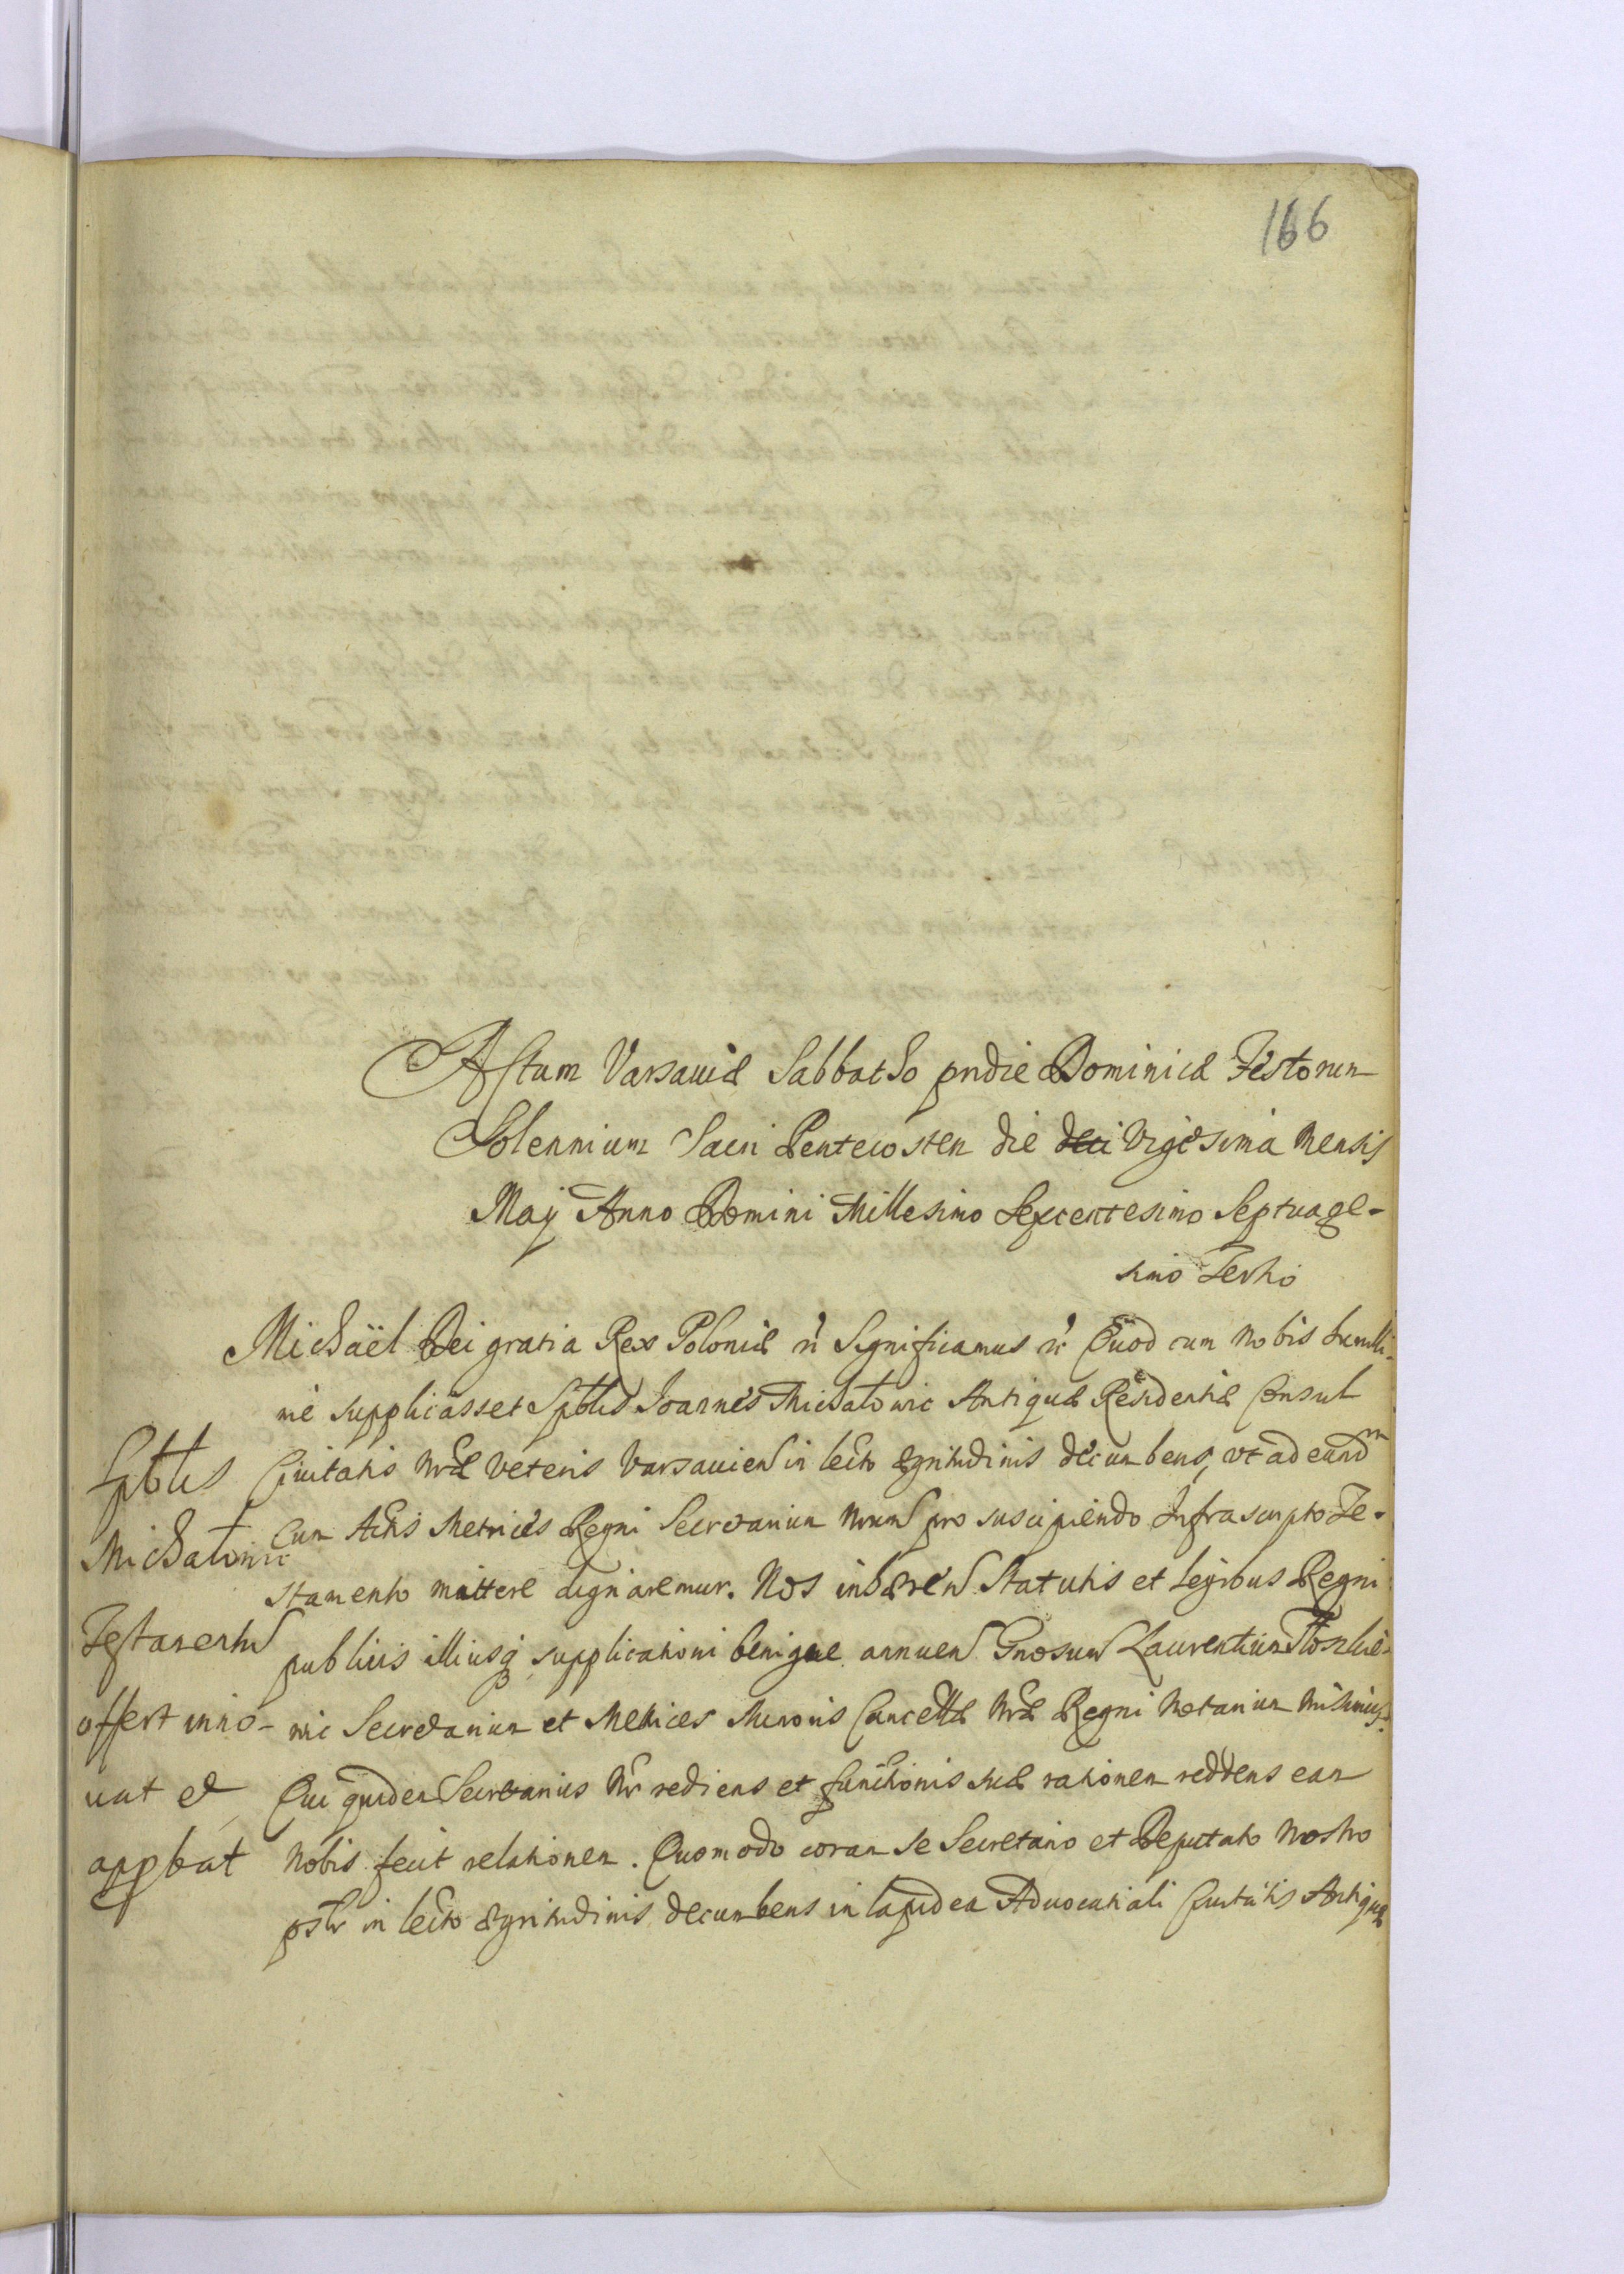 166
Actum Varsaviæ Sabbatho pridie Dominicæ Festorum
Solennium Sacri Pentecosten die deci Vigesima Mensis
Maij Anno Domini Millesimo Sexcentesimo Septuage-
simo Tertio
Michaël Dei gratia Rex Poloniæ etc Significamus etc Quod cum Nobis humilli-
mè supplicasset Sptblis Joannes Michalowic Antiquæ Residentiæ Consul
Civitatis Nræ Veteris Varsavien in lecto ægritudinis decumbens, vt ad eund
Cum Actis Metrices Regni Secretarium Nrum pro suscipiendo Infrascripto Te-
stamento mittere dignaremur. Nos inhæren Statutis et Legibus Regni
publicis illiusq supplicationi benigne annuen Gnosum Laurentium
wic Secretarium et Metrices Minoris Cancellæ Nræ Regni Notarium Misimus.
Qui quidem Secretarius Nr rediens et functionis suæ rationem reddens eam
Nobis fecit relationem. Quomodo coram se Secretario et Deputato Nostro
pstr in lecto ægritudinis decumbens in lapidea Advocatiali Civitatis Antiquæ
Sptblis
Michalowic
Testamentu
offert inno-
vat et
approbat